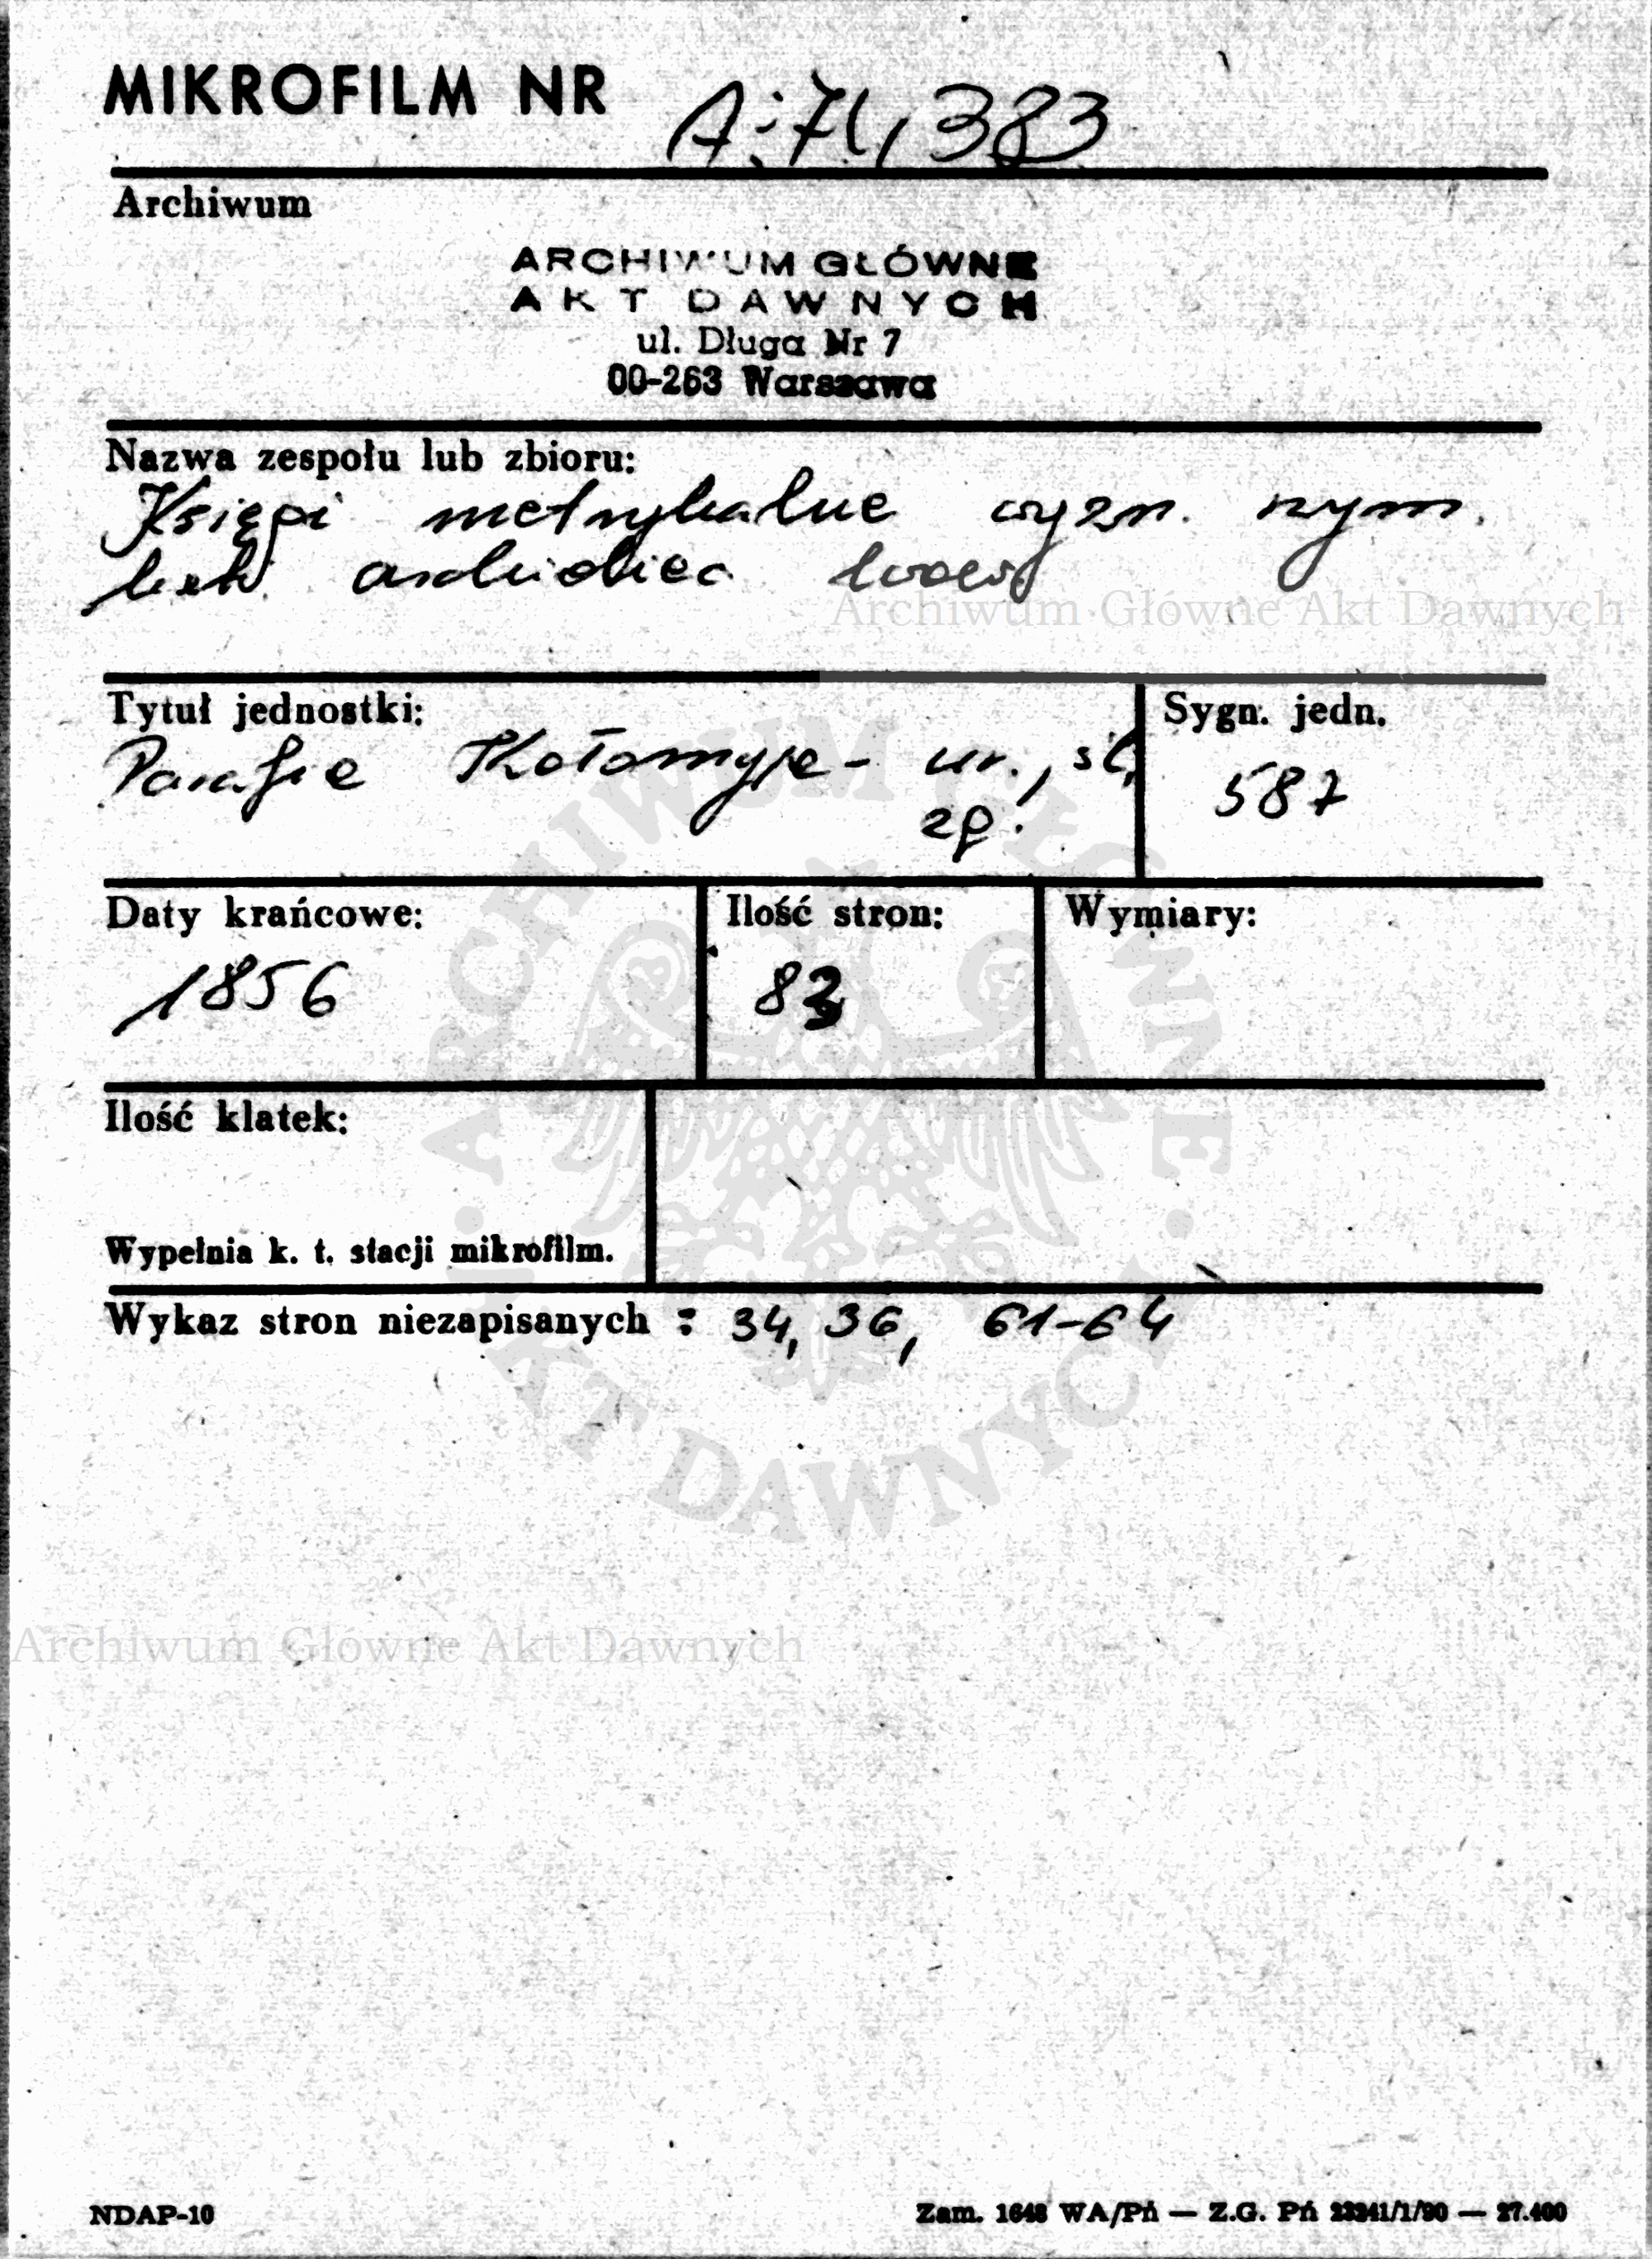 MIKROFILM NR A-71/383
Archiwum
ARCHIWUM GŁÓWNE
AKT DAWNYCH
ul. Długa Nr 7
00-263 Warszawa
Nazwa zespołu lub zbioru:
Księgi metrykalne wyzn. rzym.
kat. archidiec. lwow.
Archiwum Główne Akt Dawnych
Tytuł jednostki:
Parafie Kołomyje - ur., śl,
zg.
Sygn. jedn.
587
Daty krańcowe:
1856
Ilość stron:
83
Wymiary:
Ilość klatek:
Wypełnia k. t. stacji mikrofilm.
Wykaz stron niezapisanych : 34, 36, 61-64
ARCHIWUM GŁÓWNE
AKT DAWNYCH
Archiwum Główne Akt Dawnych
NDAP-10
Zam. 1648 WA/Pń — Z.G. Pń 23241/1/90 — 27.400